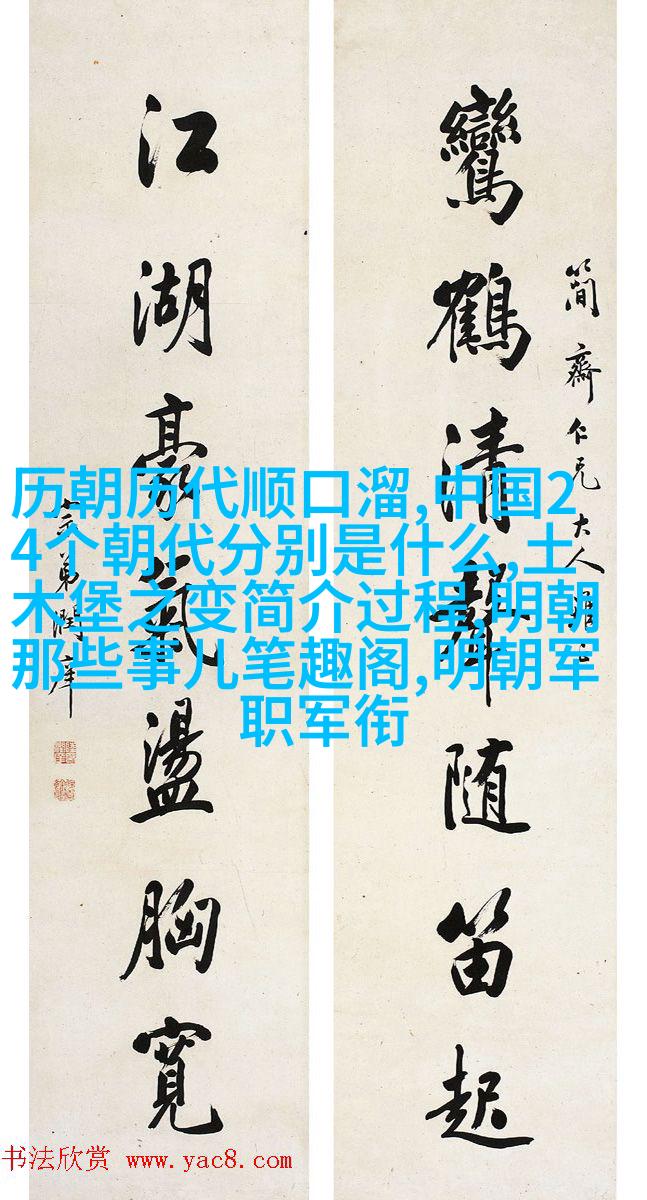 鸞鶴清聲随笛起
簡齋仁兄大人
江湖豪氣盪胸寬
弟潤庠
历朝历代顺口溜,中国2
4个朝代分别是什么,土
木堡之变简介过程,明朝
那些事儿笔趣阁,明朝军
职军衔
书法欣赏 www.yac8.com